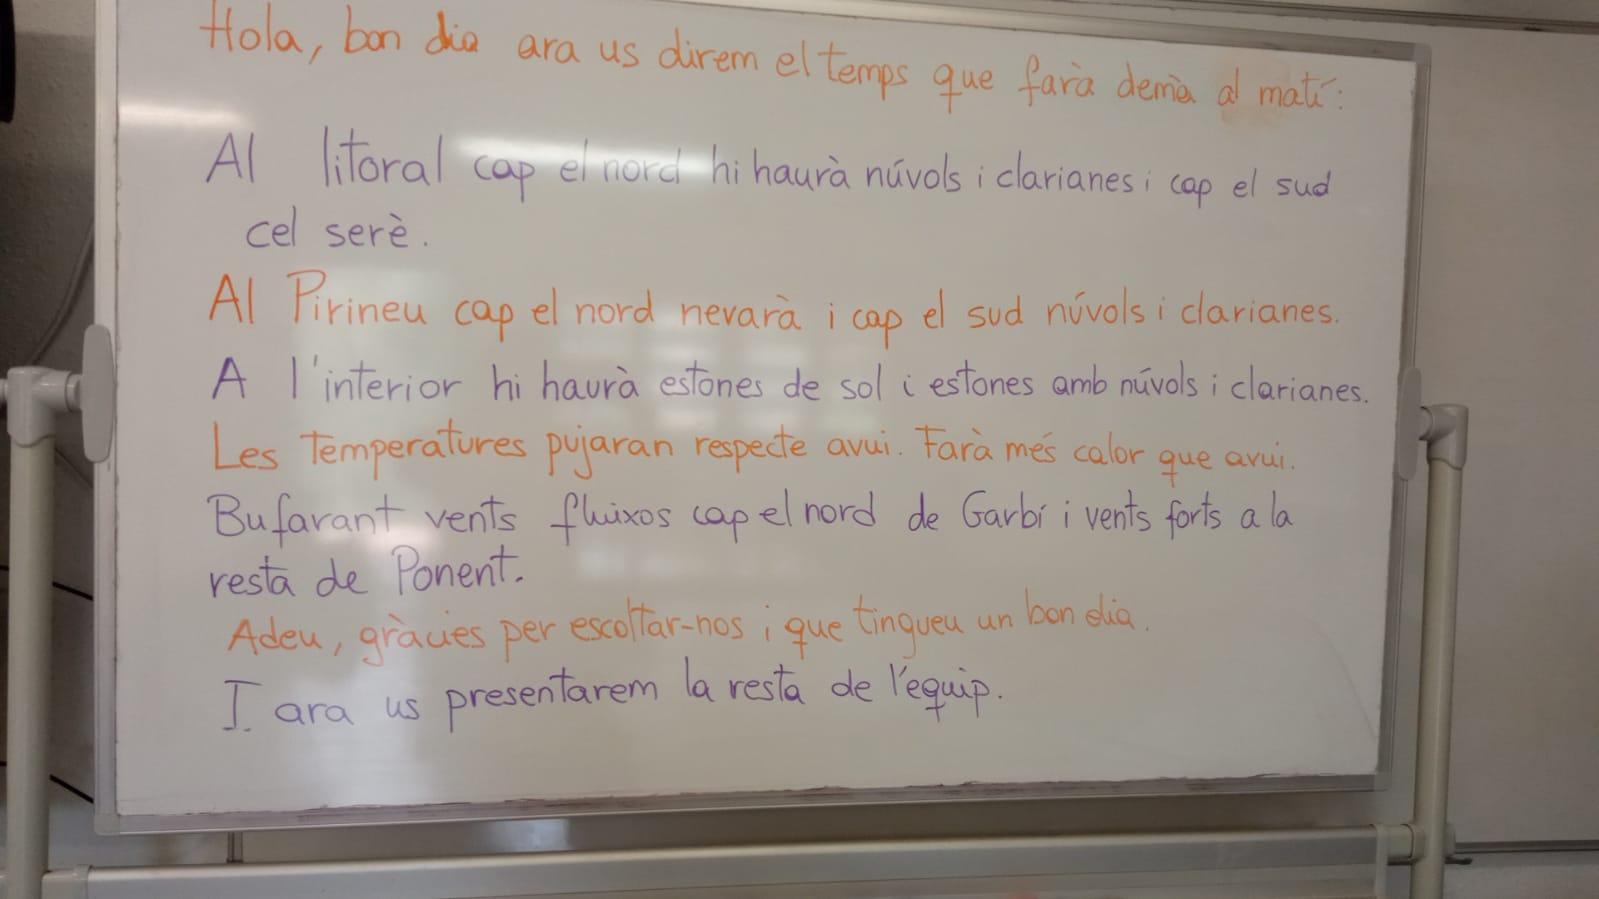 Hola, bon dia ara us direm el temps que farà demà al matí:
Al litoral cap el nord hi haurà núvols i clarianes i cap el sud
cel serè.
Al Pirineu cap el nord nevarà i cap el sud núvols i clarianes.
A l'interior hi haurà estones de sol i estones amb núvols i clarianes.
Les temperatures pujaran respecte avui. Farà més calor que avui.
Bufarant vents fluixos cap el nord de Garbí i vents forts a la
resta de Ponent.
Adeu, gràcies per escoltar-nos i que tingueu un bon dia.
I ara us presentarem la resta de l'equip.